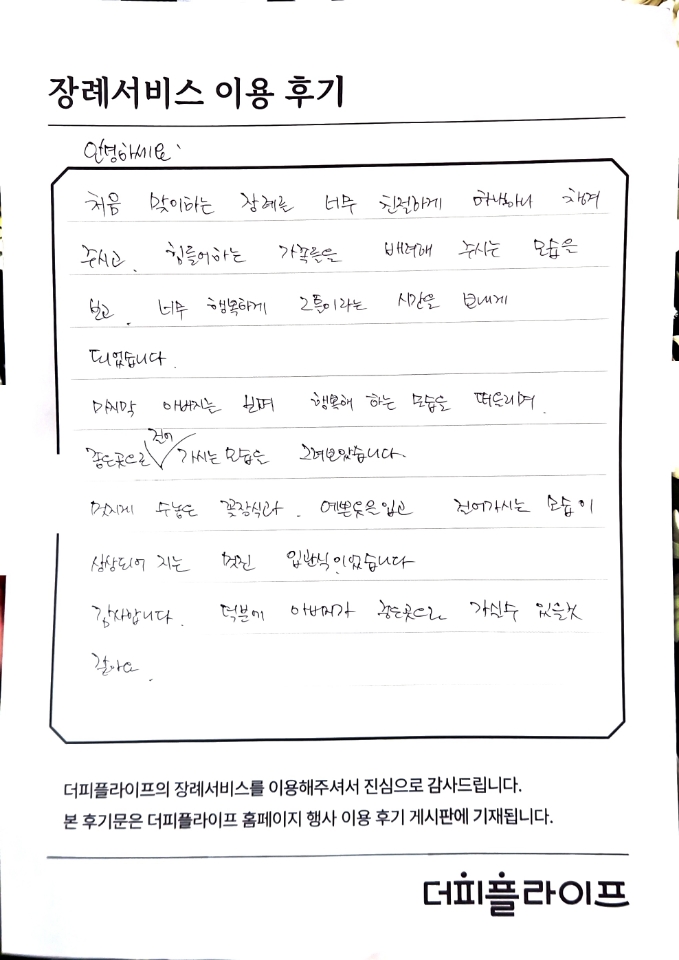 장례서비스 이용 후기
안녕하세요
처음 맞이하는 장례를 너무 친절하게 하나하나 챙겨
주시고. 힘들어하는 가족들을 배려해 주시는 모습을
보고. 너무 행복하게 2틀이라는 시간을 보내게
되었습니다.
마지막 아버지를 보며 행복해 하는 모습을 떠올리며.
걸어
좋은곳으로 가시는 모습을 그려보았습니다.
멋지게 수놓은 꽃장식과. 예쁜옷을입고 걸어가시는 모습이
상상되어 지는 멋진 입관식이었습니다
감사합니다. 덕분에 아버지가 좋은곳으로 가실수 있을것
같아요.
더피플라이프의 장례서비스를 이용해주셔서 진심으로 감사드립니다.
본 후기문은 더피플라이프 홈페이지 행사 이용 후기 게시판에 기재됩니다.
더피플라이프